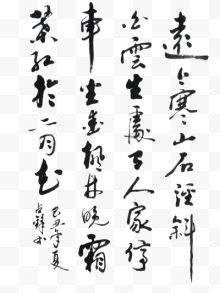 遠上寒山石徑斜
白雲生處有人家停
車坐愛楓林晚霜
葉紅於二月花
己丑年夏